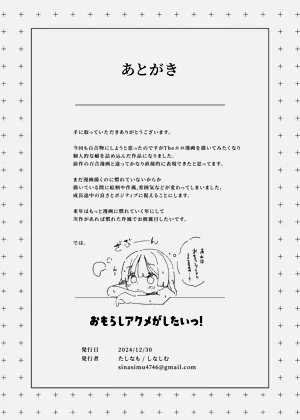 あとがき
手に取っていただきありがとうございます。
今回も百合物にしようと思ったのですがTheエロ漫画を描いてみたくなり
個人的な癖を詰め込んだ作品になりました。
前作の百合漫画と違ってかなり直接的に表現できたと思ってます。
まだ漫画描くのに慣れていないからか
描いている間に絵柄や作風､雰囲気などが変わってしまいました。
成長途中の良さとポジティブに捉えることにします。
来年はもっと漫画に慣れていく年にして
次作があれば慣れた作風でお披露目したいです。
では、
おもらしアクメがしたいっ!
発行日 2024/12/30
発行者 たしなも / しなしむ
sinasimu4746@gmail.com